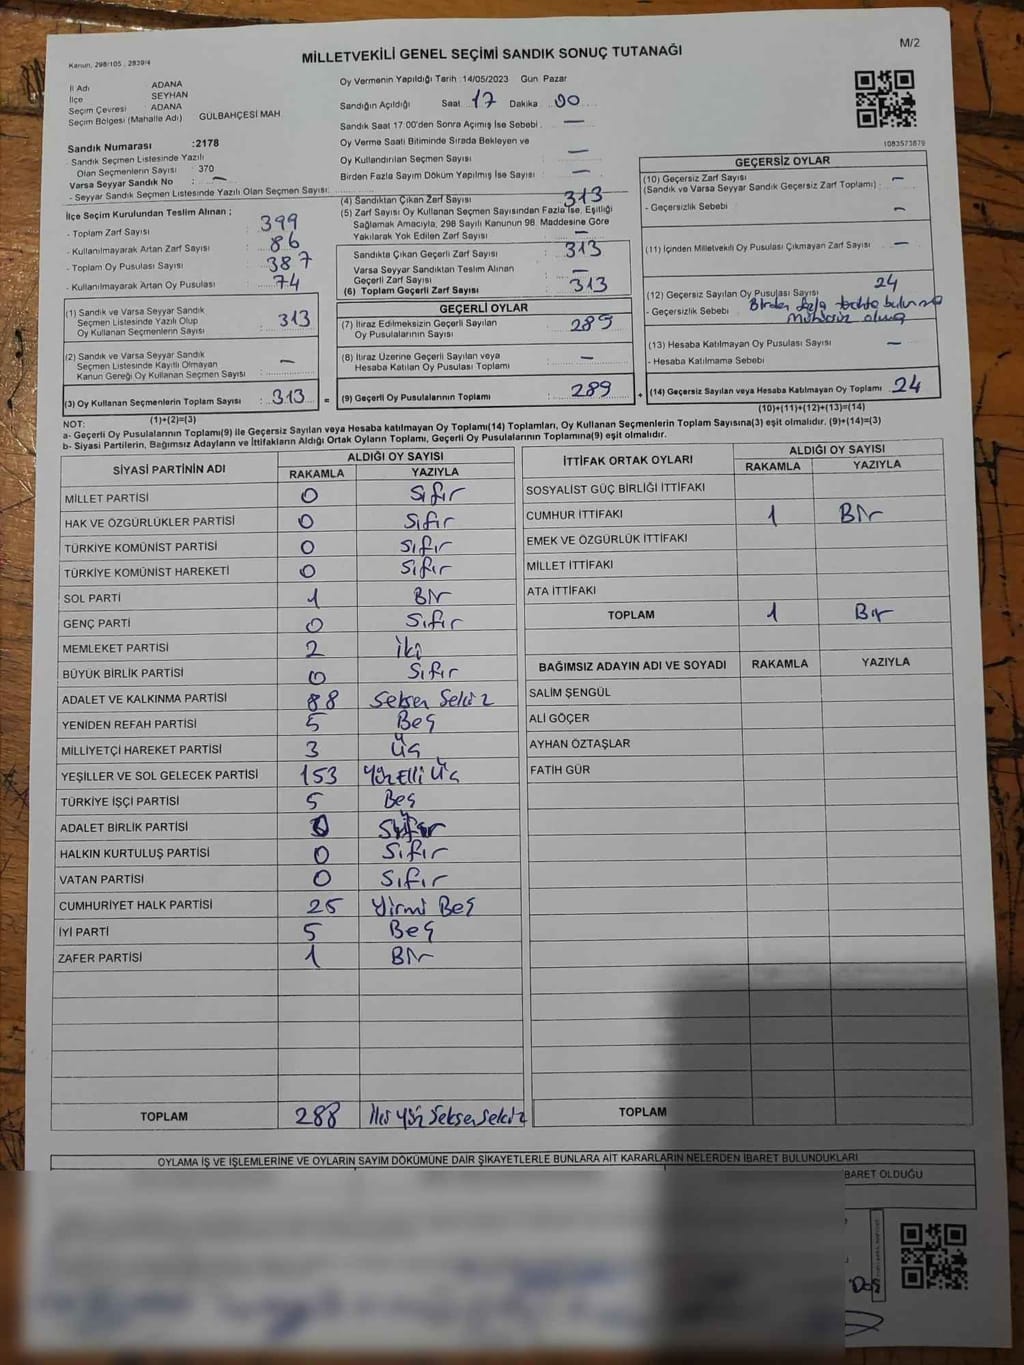 M/2
Kanun, 298/105 . 2839/4
MİLLETVEKİLİ GENEL SEÇİMİ SANDIK SONUÇ TUTANAĞI
İl Adı ADANA
İlçe SEYHAN
Seçim Çevresi : ADANA
Seçim Bölgesi (Mahalle Adı) GÜLBAHÇESİ MAH.
Sandık Numarası :2178
- Sandık Seçmen Listesinde Yazılı
Olan Seçmenlerin Sayısı : 370
Varsa Seyyar Sandık No : —
- Seyyar Sandık Seçmen Listesinde Yazılı Olan Seçmen Sayısı:
İlçe Seçim Kurulundan Teslim Alınan ;
- Toplam Zarf Sayısı : 399
- Kullanılmayarak Artan Zarf Sayısı : 86
- Toplam Oy Pusulası Sayısı : 387
- Kullanılmayarak Artan Oy Pusulası : 74
(1) Sandık ve Varsa Seyyar Sandık
Seçmen Listesinde Yazılı Olup
Oy Kullanan Seçmenlerin Sayısı : 313
(2) Sandık ve Varsa Seyyar Sandık
Seçmen Listesinde Kayıtlı Olmayan
Kanun Gereği Oy Kullanan Seçmen Sayısı : —
(3) Oy Kullanan Seçmenlerin Toplam Sayısı : 313 =
(1)+(2)=(3)
Oy Vermenin Yapıldığı Tarih :14/05/2023 Gün Pazar
Sandığın Açıldığı Saat 17 Dakika 00
Sandık Saat 17:00'den Sonra Açımış İse Sebebi . —
Oy Verme Saati Bitiminde Sırada Bekleyen ve
Oy Kullandırılan Seçmen Sayısı : —
Birden Fazla Sayım Döküm Yapılmış İse Sayısı : —
(4) Sandıktan Çıkan Zarf Sayısı : 313
(5) Zarf Sayısı Oy Kullanan Seçmen Sayısından Fazla İse, Eşitliği
Sağlamak Amacıyla, 298 Sayılı Kanunun 98. Maddesine Göre
Yakılarak Yok Edilen Zarf Sayısı : —
Sandıkta Çıkan Geçerli Zarf Sayısı : 313
Varsa Seyyar Sandıktan Teslim Alınan
Geçerli Zarf Sayısı : —
(6) Toplam Geçerli Zarf Sayısı : 313
GEÇERLİ OYLAR
(7) İtiraz Edilmeksizin Geçerli Sayılan
Oy Pusulalarının Sayısı : 289
(8) İtiraz Üzerine Geçerli Sayılan veya
Hesaba Katılan Oy Pusulası Toplamı : —
(9) Geçerli Oy Pusulalarının Toplamı : 289 +
1083573879
GEÇERSİZ OYLAR
(10) Geçersiz Zarf Sayısı
(Sandık ve Varsa Seyyar Sandık Geçersiz Zarf Toplamı) : —
- Geçersizlik Sebebi : —
(11) İçinden Milletvekili Oy Pusulası Çıkmayan Zarf Sayısı : —
(12) Geçersiz Sayılan Oy Pusulası Sayısı : 24
- Geçersizlik Sebebi : Birden fazla
(13) Hesaba Katılmayan Oy Pusulası Sayısı : —
- Hesaba Katılmama Sebebi
(14) Geçersiz Sayılan veya Hesaba Katılmayan Oy Toplamı : 24
(10)+(11)+(12)+(13)=(14)
NOT:
a- Geçerli Oy Pusulalarının Toplamı(9) ile Geçersiz Sayılan veya Hesaba Katılmayan Oy Toplamı(14) Toplamları, Oy Kullanan Seçmenlerin Toplam Sayısına(3) eşit olmalıdır. (9)+(14)=(3)
b- Siyasi Partilerin, Bağımsız Adayların ve İttifakların Aldığı Ortak Oyların Toplamı, Geçerli Oy Pusulalarının Toplamına(9) eşit olmalıdır.
SİYASİ PARTİNİN ADI ALDIĞI OY SAYISI
RAKAMLA YAZIYLA
MİLLET PARTİSİ 0 Sıfır
HAK VE ÖZGÜRLÜKLER PARTİSİ 0 Sıfır
TÜRKİYE KOMÜNİST PARTİSİ 0 Sıfır
TÜRKİYE KOMÜNİST HAREKETİ 0 Sıfır
SOL PARTİ 1 Bir
GENÇ PARTİ 0 Sıfır
MEMLEKET PARTİSİ 2 İki
BÜYÜK BİRLİK PARTİSİ 0 Sıfır
ADALET VE KALKINMA PARTİSİ 88 Seksen Sekiz
YENİDEN REFAH PARTİSİ 5 Beş
MİLLİYETÇİ HAREKET PARTİSİ 3 Üç
YEŞİLLER VE SOL GELECEK PARTİSİ 153 Yüz Elli Üç
TÜRKİYE İŞÇİ PARTİSİ 5 Beş
ADALET BİRLİK PARTİSİ 0 Sıfır
HALKIN KURTULUŞ PARTİSİ 0 Sıfır
VATAN PARTİSİ 0 Sıfır
CUMHURİYET HALK PARTİSİ 25 Yirmi Beş
İYİ PARTİ 5 Beş
ZAFER PARTİSİ 1 Bir
TOPLAM 288 İki Yüz Seksen Sekiz
İTTİFAK ORTAK OYLARI ALDIĞI OY SAYISI
RAKAMLA YAZIYLA
SOSYALİST GÜÇ BİRLİĞİ İTTİFAKI
CUMHUR İTTİFAKI 1 Bir
EMEK VE ÖZGÜRLÜK İTTİFAKI
MİLLET İTTİFAKI
ATA İTTİFAKI
TOPLAM 1 Bir
BAĞIMSIZ ADAYIN ADI VE SOYADI RAKAMLA YAZIYLA
SALİM ŞENGÜL
ALİ GÖÇER
AYHAN ÖZTAŞLAR
FATİH GÜR
TOPLAM
OYLAMA İŞ VE İŞLEMLERİNE VE OYLARIN SAYIM DÖKÜMÜNE DAİR ŞİKAYETLERLE BUNLARA AİT KARARLARIN NELERDEN İBARET BULUNDUKLARI
BARET OLDUĞU